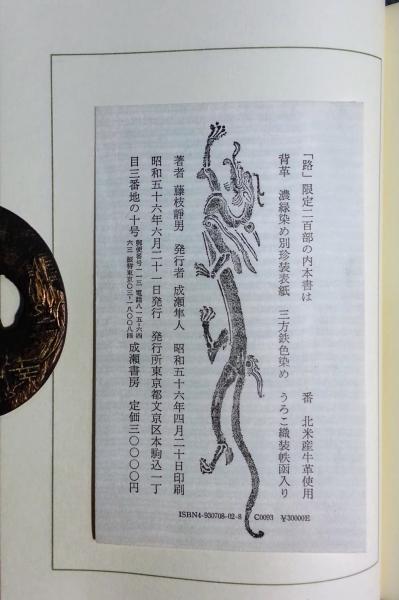 「路」限定二百部の内本書は　　　番　北米産牛革使用
背革　濃緑染め別珍装表紙　三方鉄色染め　うろこ織装帙函入り
著者　藤枝靜男　発行者　成瀬隼人　昭和五十六年四月二十日印刷
昭和五十六年六月二十一日発行　発行所東京都文京区本駒込一丁
目三番地の十号　郵便番号一一三　電話八一五-六四
六三　振替東京〇三-一八〇〇八四　成瀬書房　定価三〇〇〇〇円
ISBN4-930708-02-8　C0093　¥30000E